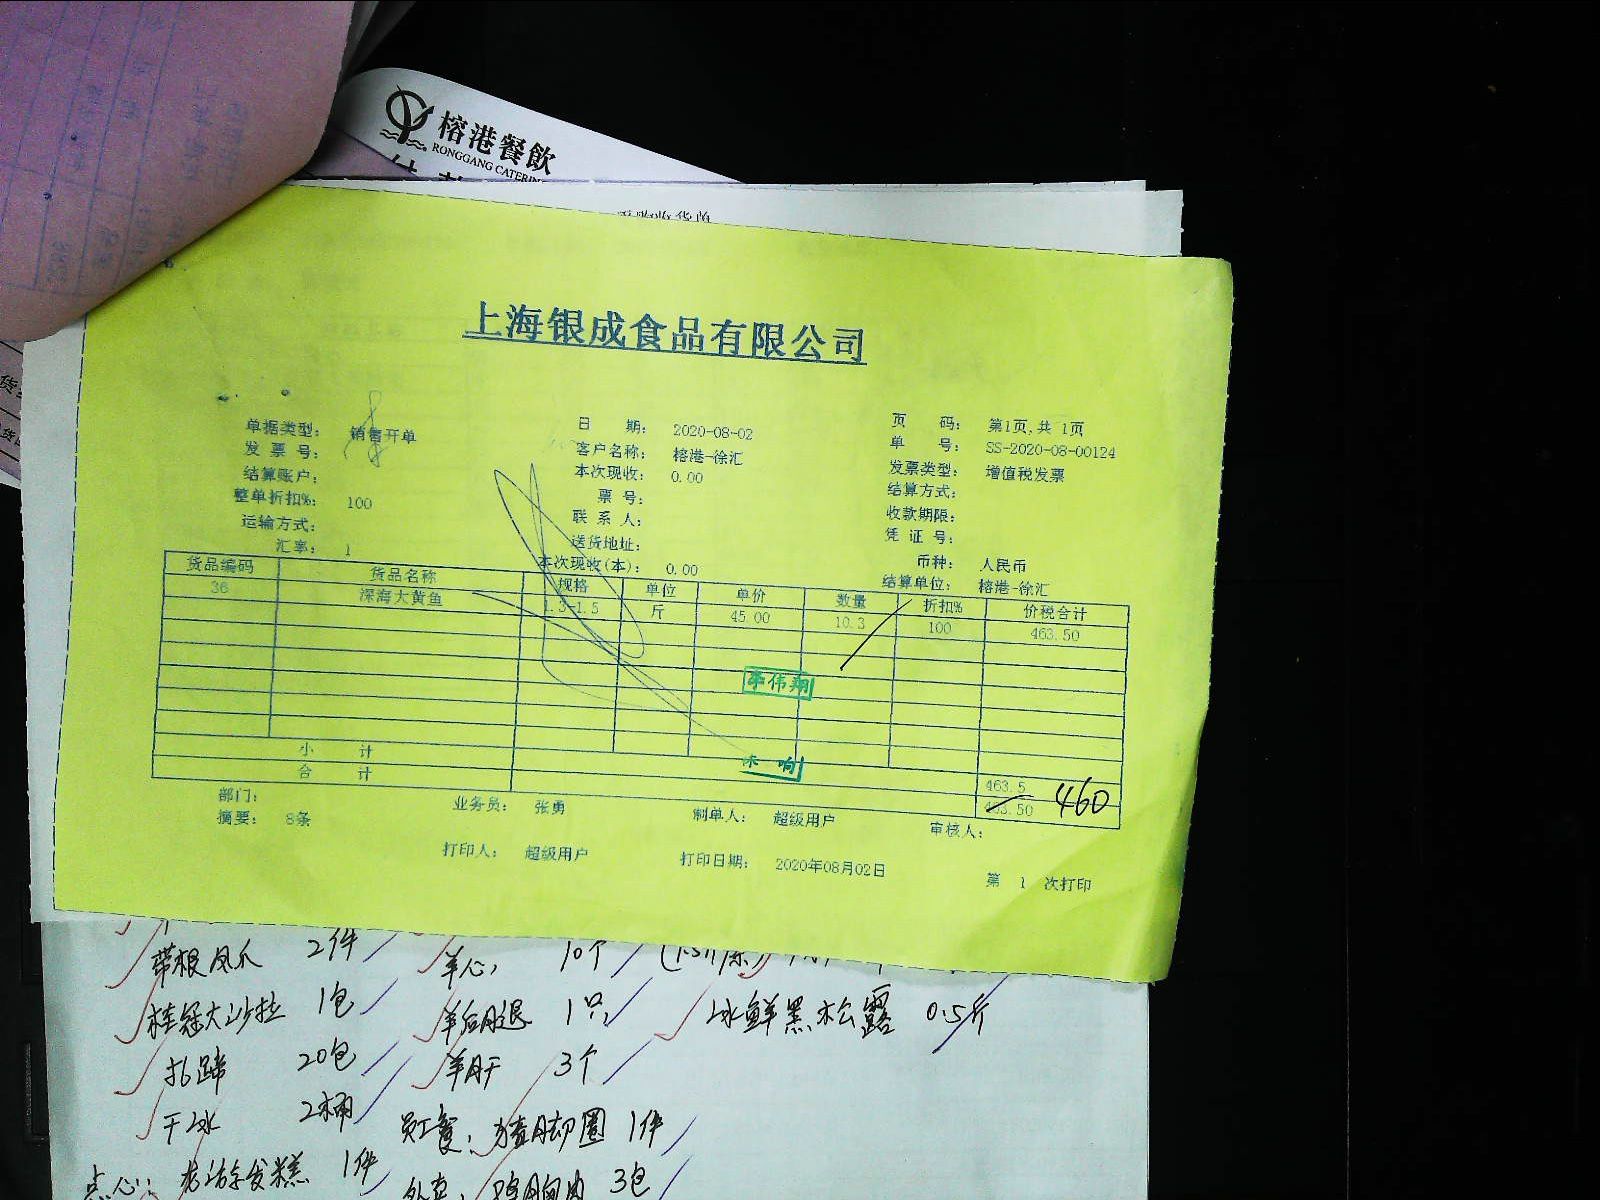 榕港餐飲
RONGGANG CATERIN
上海银成食品有限公司
单据类型: 销售开单 日 期: 2020-08-02 页 码: 第1页,共 1页
发 票 号: 客户名称: 榕港-徐汇 单 号: SS-2020-08-00124
结算账户: 本次现收: 0.00 发票类型: 增值税发票
整单折扣%: 100 票 号: 结算方式:
运输方式: 联 系 人: 收款期限:
汇率: 1 送货地址: 凭 证 号:
本次现收(本): 0.00 币种: 人民币
结算单位: 榕港-徐汇
货品编码 货品名称 规格 单位 单价 数量 折扣% 价税合计
36 深海大黄鱼 1.3-1.5 斤 45.00 10.3 100 463.50
小 计 463.5
合 计 463.50 460
部门: 业务员: 张勇 制单人: 超级用户 审核人:
摘要: 8条
打印人: 超级用户 打印日期: 2020年08月02日 第 1 次打印
带根凤爪 2件 羊心 10个
桂冠大沙拉 1包 羊后腿 1只 冰鲜黑松露 0.5斤
扎蹄 20包 羊肝 3个
干冰 2桶 员工餐: 1件
点心: 1件 3包